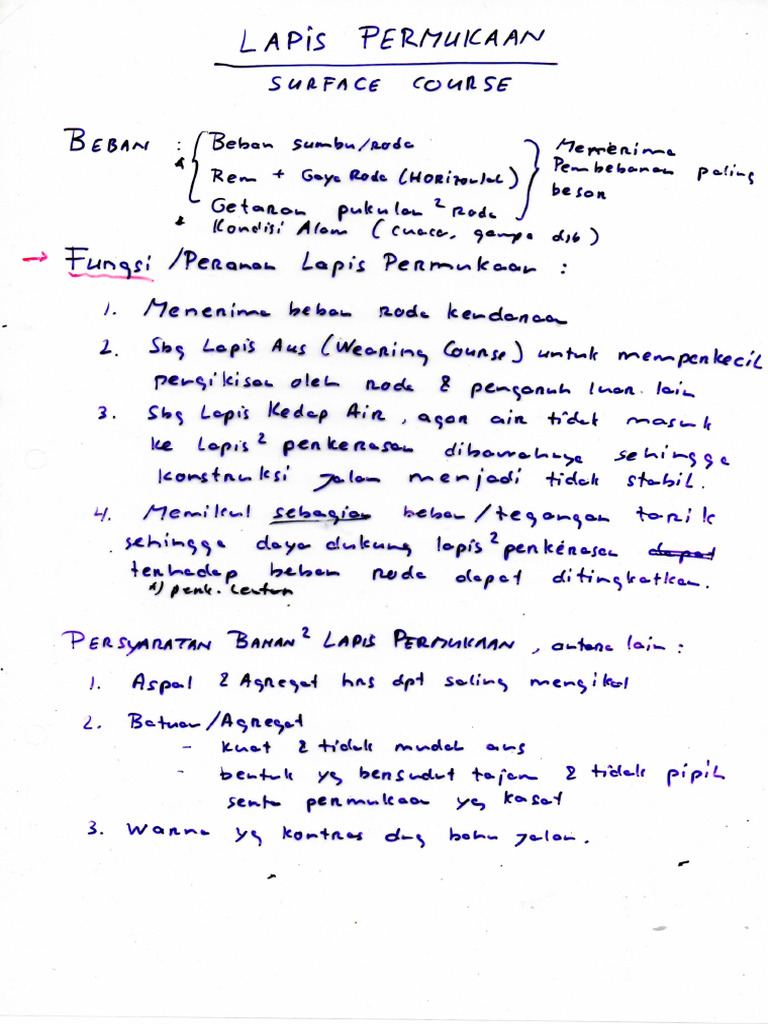 LAPIS PERMUKAAN
SURFACE COURSE
BEBAN : Beban sumbu/roda
Rem + Gaya Roda (Horizontal)
Getaran pukulan² Roda
Menerima
Pembebanan paling
besar
* Kondisi Alam (cuaca, gempa dsb)
→ Fungsi /Peranan Lapis Permukaan :
1. Menerima beban roda kendaraan
2. Sbg Lapis Aus (Wearing Course) untuk memperkecil
pengikisan oleh roda & pengaruh luar lain
3. Sbg Lapis Kedap Air, agar air tidak masuk
ke lapis² perkerasan dibawahnya sehingga
konstruksi jalan menjadi tidak stabil.
4. Memikul sebagian beban/tegangan tarik
sehingga daya dukung lapis² perkerasan dapat
terhadap beban roda dapat ditingkatkan.
*) perk. lentur
PERSYARATAN BAHAN² LAPIS PERMUKAAN, antara lain :
1. Aspal & Agregat hrs dpt saling mengikat
2. Batuan/Agregat
- kuat & tidak mudah aus
- bentuk yg bersudut tajam & tidak pipih
serta permukaan yg kasat
3. Warna yg kontras dng bahu jalan.